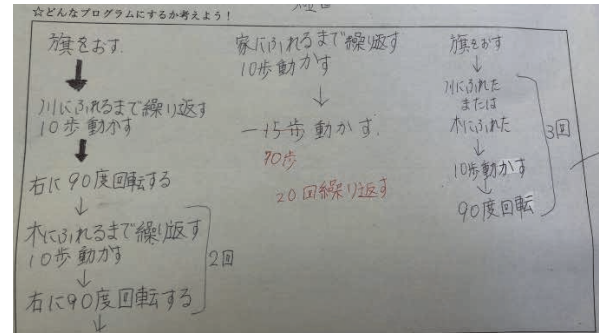 ☆どんなプログラムにするか考えよう！
旗をおす.
↓
川にふれるまで繰り返す
10歩動かす
↓
右に90度回転する
↓
木にふれるまで繰り返す
10歩動かす
↓
右に90度回転する
↓
2回
家にふれるまで繰り返す
10歩動かす
↓
-15歩動かす.
70歩
20回繰り返す
旗をおす
↓
川にふれた
または
木にふれた
↓
10歩動かす
↓
90度回転
3回